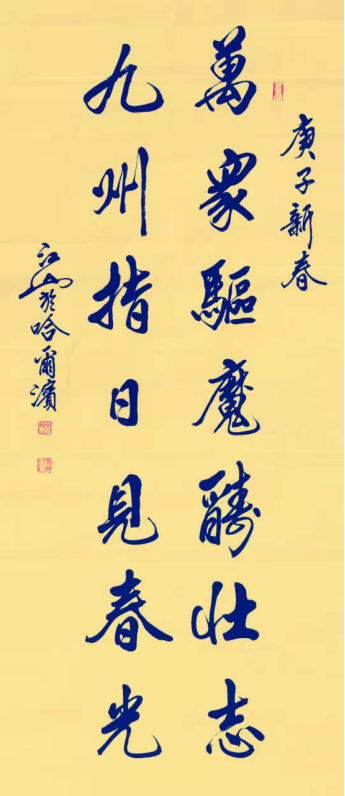 庚子新春
萬衆驅魔醻壮志
九州指日見春光
江山於哈爾濱